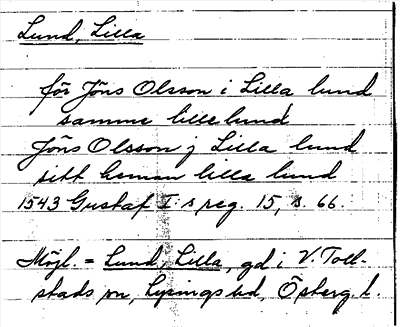 Lund, Lilla
för Jöns Olsson i Lilla lund
samme lille lund
Jöns Olsson j Lilla lund
sitt heman lilla lund
1543 Gustaf I:s reg. 15, s. 66.
Möjl. = Lund, Lilla, gd i V. Toll-
stads sn, Lysings hd, Östergl.